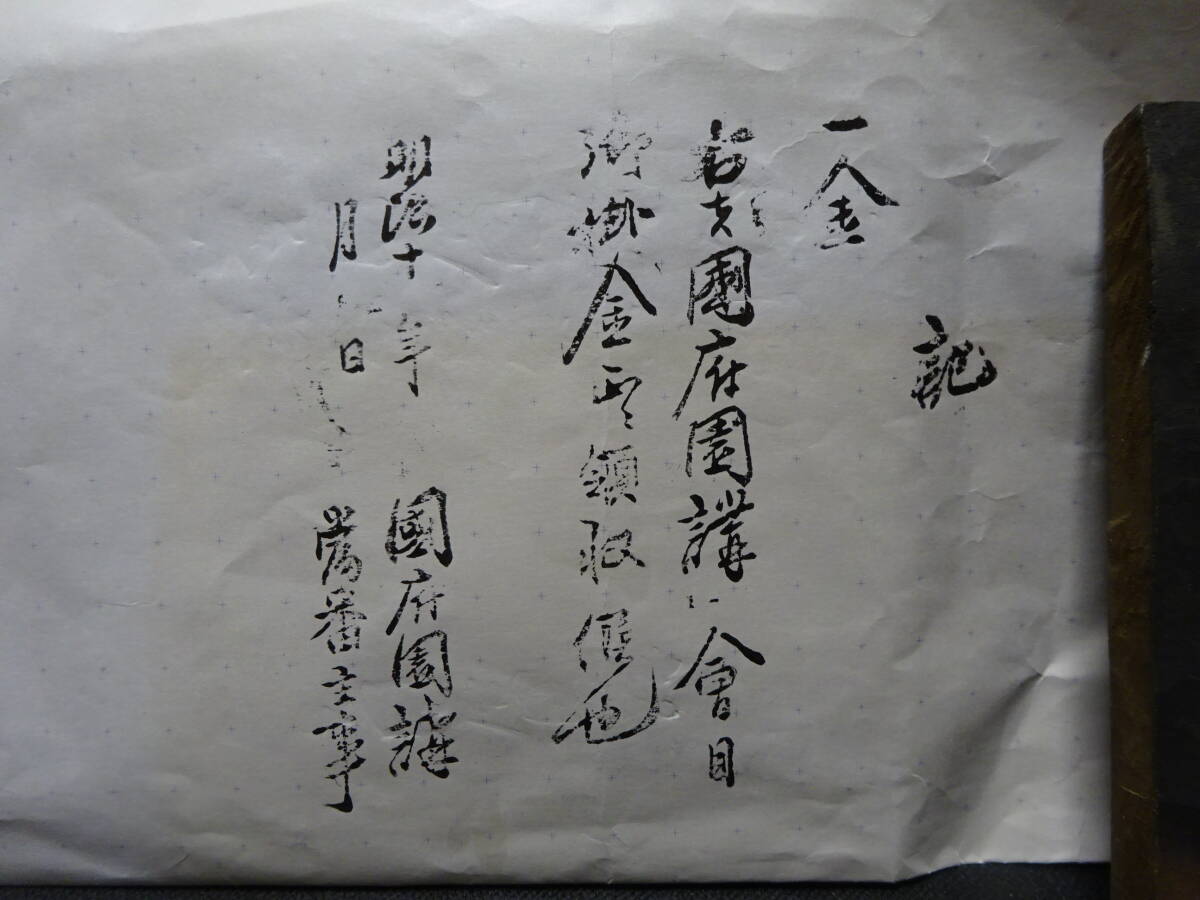 記
一金
右者國府園講 會目
御掛金正領収候也
明治十 年
月 日
國府園講
當番主事